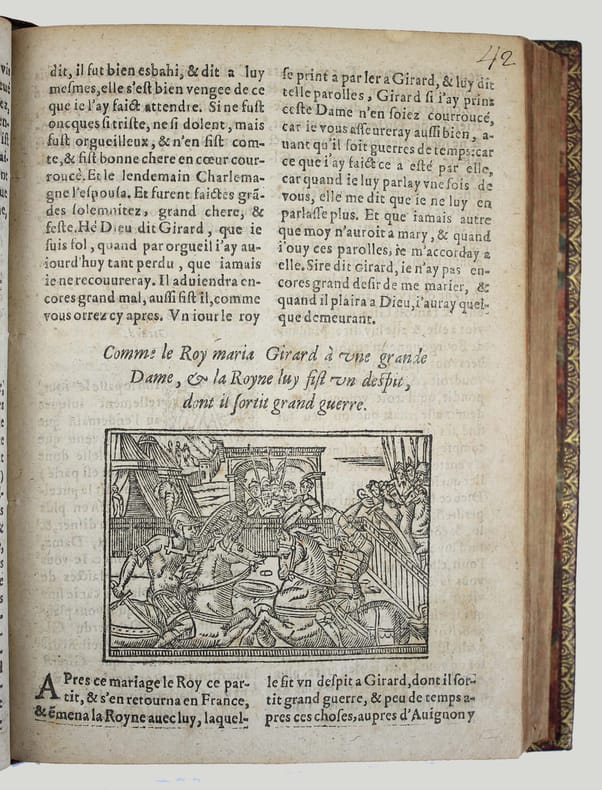 42
dit, il fut bien esbahi, & dit a luy
mesmes, elle s'est bien vengee de ce
que ie l'ay faict attendre. Si ne fust
oncques si triste, ne si dolent, mais
fust orgueilleux, & n'en fist com-
te, & fist bonne chere en cœur cour-
roucé. Et le lendemain Charlema-
gne l'espousa. Et furent faictes grã-
des solemnitez, grand chere, &
feste. Hé Dieu dit Girard, que ie
suis fol, quand par orgueil i'ay au-
iourd'huy tant perdu, que iamais
ie ne recouureray. Il aduiendra en-
cores grand mal, aussi fist il, comme
vous orrez cy apres. Vn iour le roy
se print a parler a Girard, & luy dit
telle parolles, Girard si i'ay prins
ceste Dame n'en soiez courroucé,
car ie vous asseureray aussi bien, a-
uant qu'il soit guerres de temps: car
ce que i'ay faict ce a esté par elle,
car quand ie luy parlay vne fois de
vous, elle me dit que ie ne luy en
parlasse plus. Et que iamais autre
que moy n'auroit a mary, & quand
i'ouy ces parolles, ie m'accorday a
elle. Sire dit Girard, ie n'ay pas en-
cores grand desir de me marier, &
quand il plaira a Dieu, i'auray quel-
que demeurant.
Comme le Roy maria Girard à vne grande
Dame, & la Royne luy fist vn despit,
dont il sortit grand guerre.
APres ce mariage le Roy ce par-
tit, & s'en retourna en France,
& ẽmena la Royne auec luy, laquel-
le fit vn despit a Girard, dont il sor-
tit grand guerre, & peu de temps a-
pres ces choses, aupres d'Auignon y